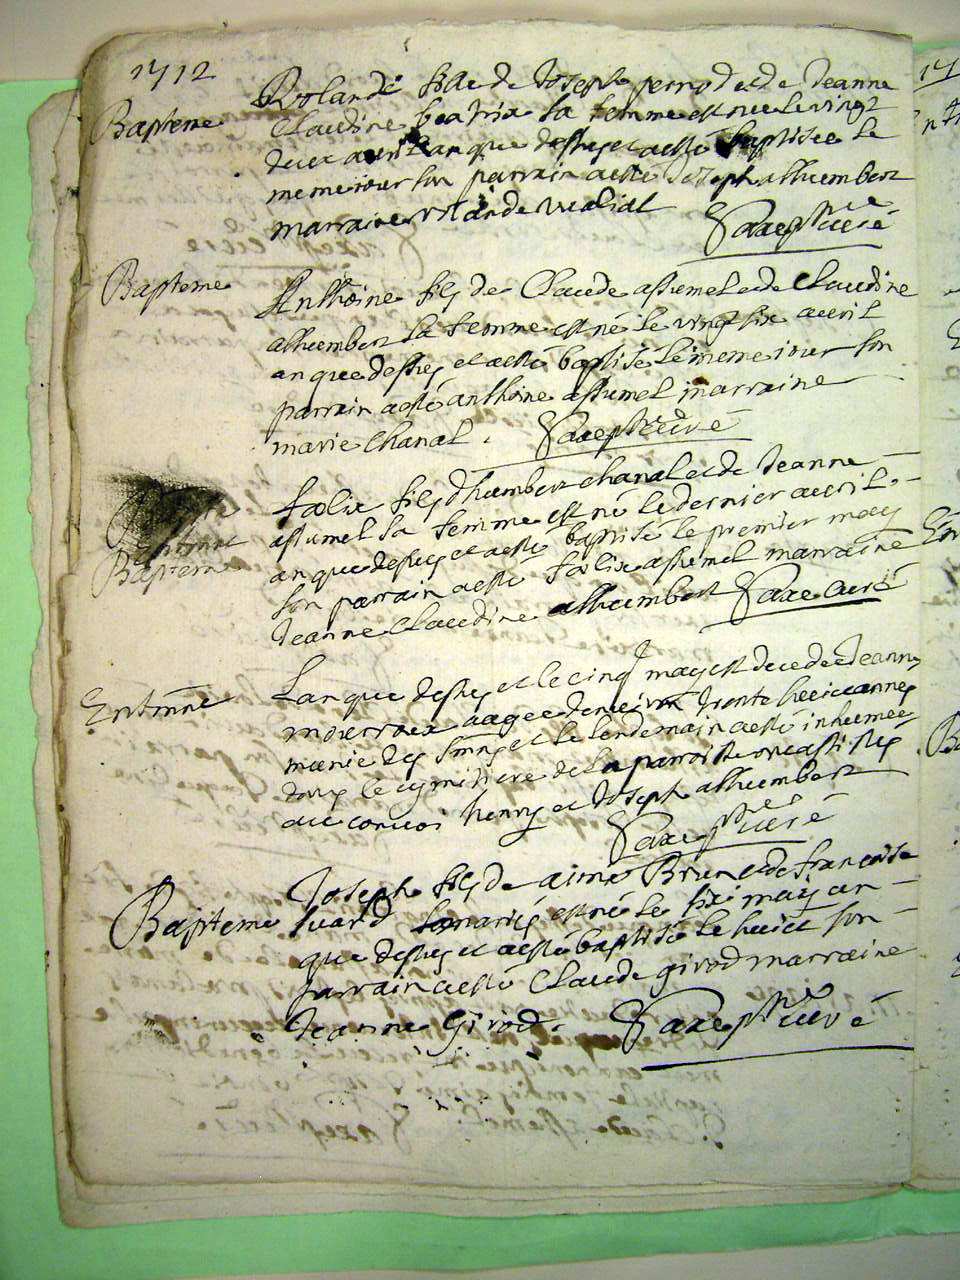 1712
Bapteme
Rolande fille de Joseph perrod et de Jeanne
Claudine beatrix sa femme est née le vingt
deux avril an que dessus et a esté baptisée le
meme iour son parrain a esté Joseph alhumbert
marraine rolande vialiat
Saxe ptre curé
Bapteme
Anthoine fils de Claude assumel et de Claudine
alhumbert sa femme est né le vingt six avril
an que dessus et a esté baptisé le meme iour son
parrain a esté anthoine assumel marraine
marie Chanal . Saxe ptre curé
Bapteme
fœlix fils d'humbert chanal et de Jeanne
assumel sa femme est né le dernier avril
an que dessus et a esté baptisé le premier may
son parrain a esté fœlix assumel marraine
Jeanne Claudine alhumbert Saxe curé
Entermt
L'an que dessus et le cinq may est decedee Jeanne
aagee d'environ trente huict annees
munie des srmns et le lendemain a esté inhumee
dans le cymitiere de la parroisse ont assistés
au convoi henry et Joseph alhumbert
Saxe ptre curé
Bapteme
Joseph fils de aimé Brun et de francoise
suard mariés est né le six may an
que dessus et a esté baptisé le huict son
parrain a esté Claude girod marraine
Jeanne Girod. Saxe ptre curé